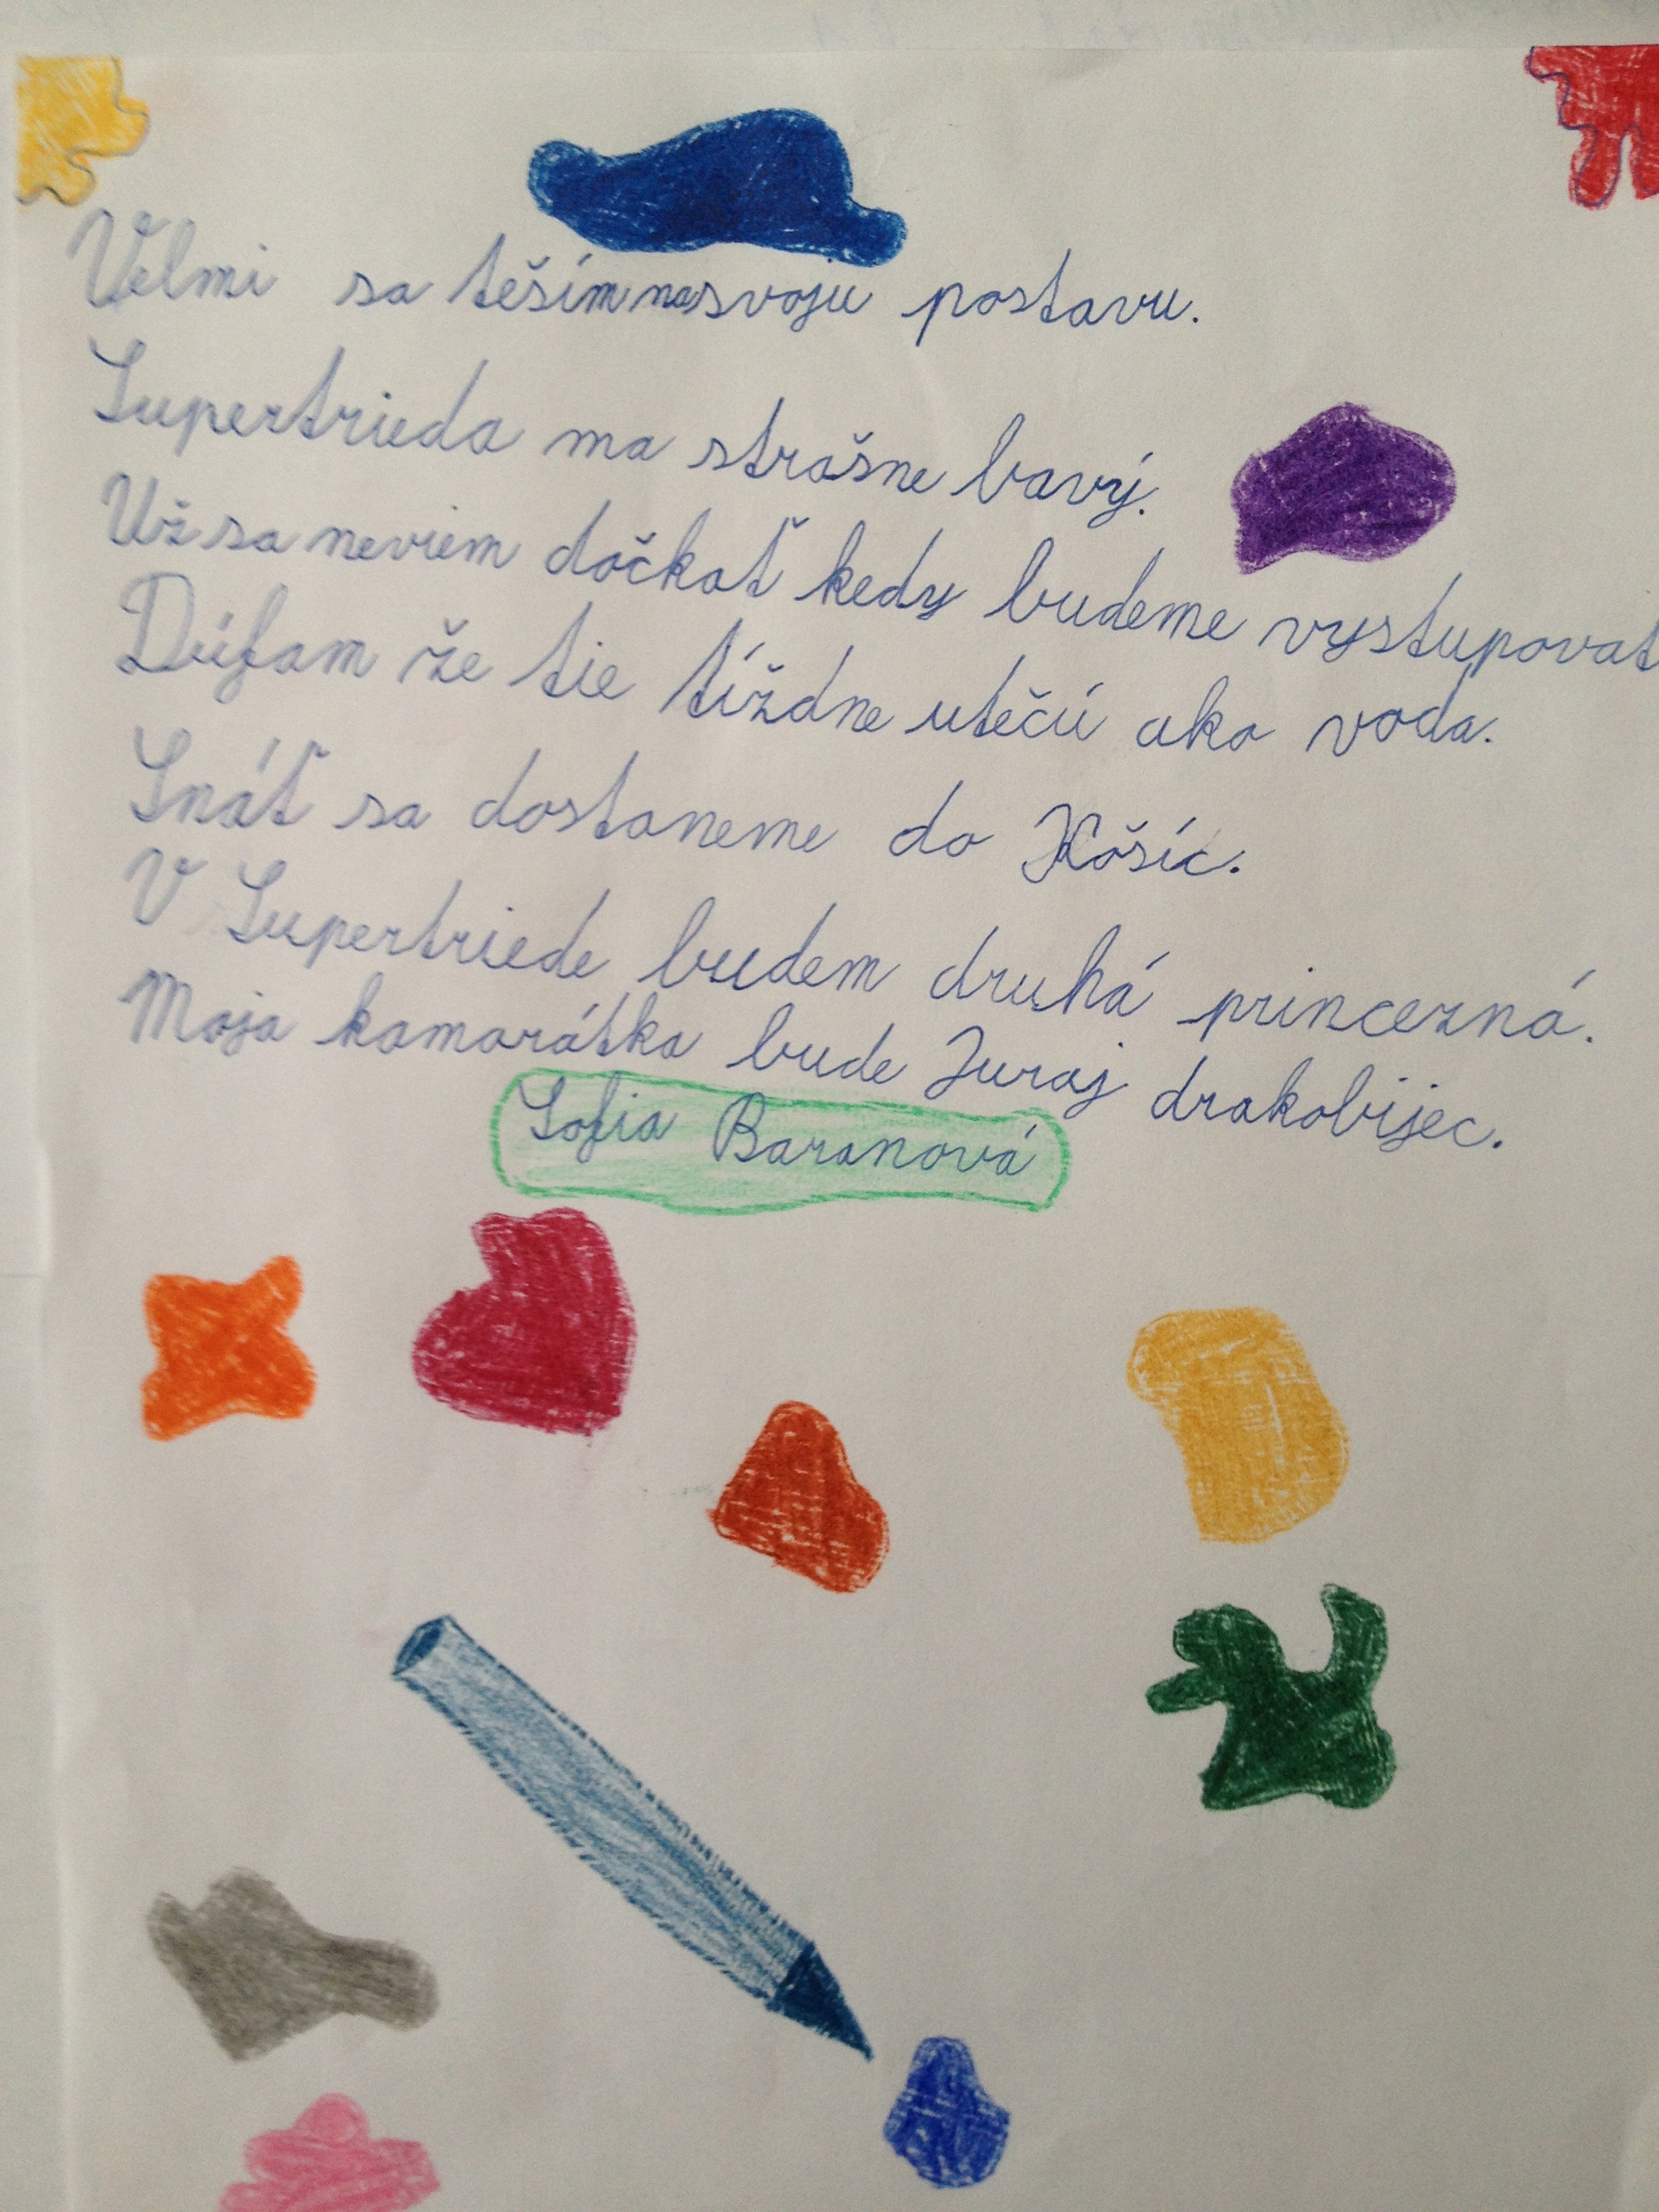 Veľmi sa těším na svoju postavu.
Supertrieda ma strašne bavý.
Už sa neviem dočkať kedy budeme vystupovať
Dúfam že tie tíždne utěčú ako voda.
Snáť sa dostaneme do Košíc.
V Supertriede budem druhá princezná.
Moja kamarátka bude Juraj drakobijec.
Sofia Baranová